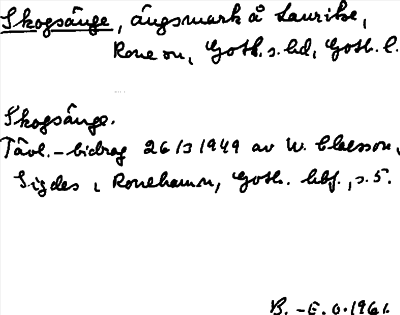 Skogsänge, ängsmark å Laurike,
Rone sn, Gotl. s. hd, Gotl. l.
Skogsänge.
Tävl.-bidrag 26/3 1949 av W. Claesson,
Sigdes, Ronehamn, Gotl. hbf., s. 5.
B.-E. O. 1961.